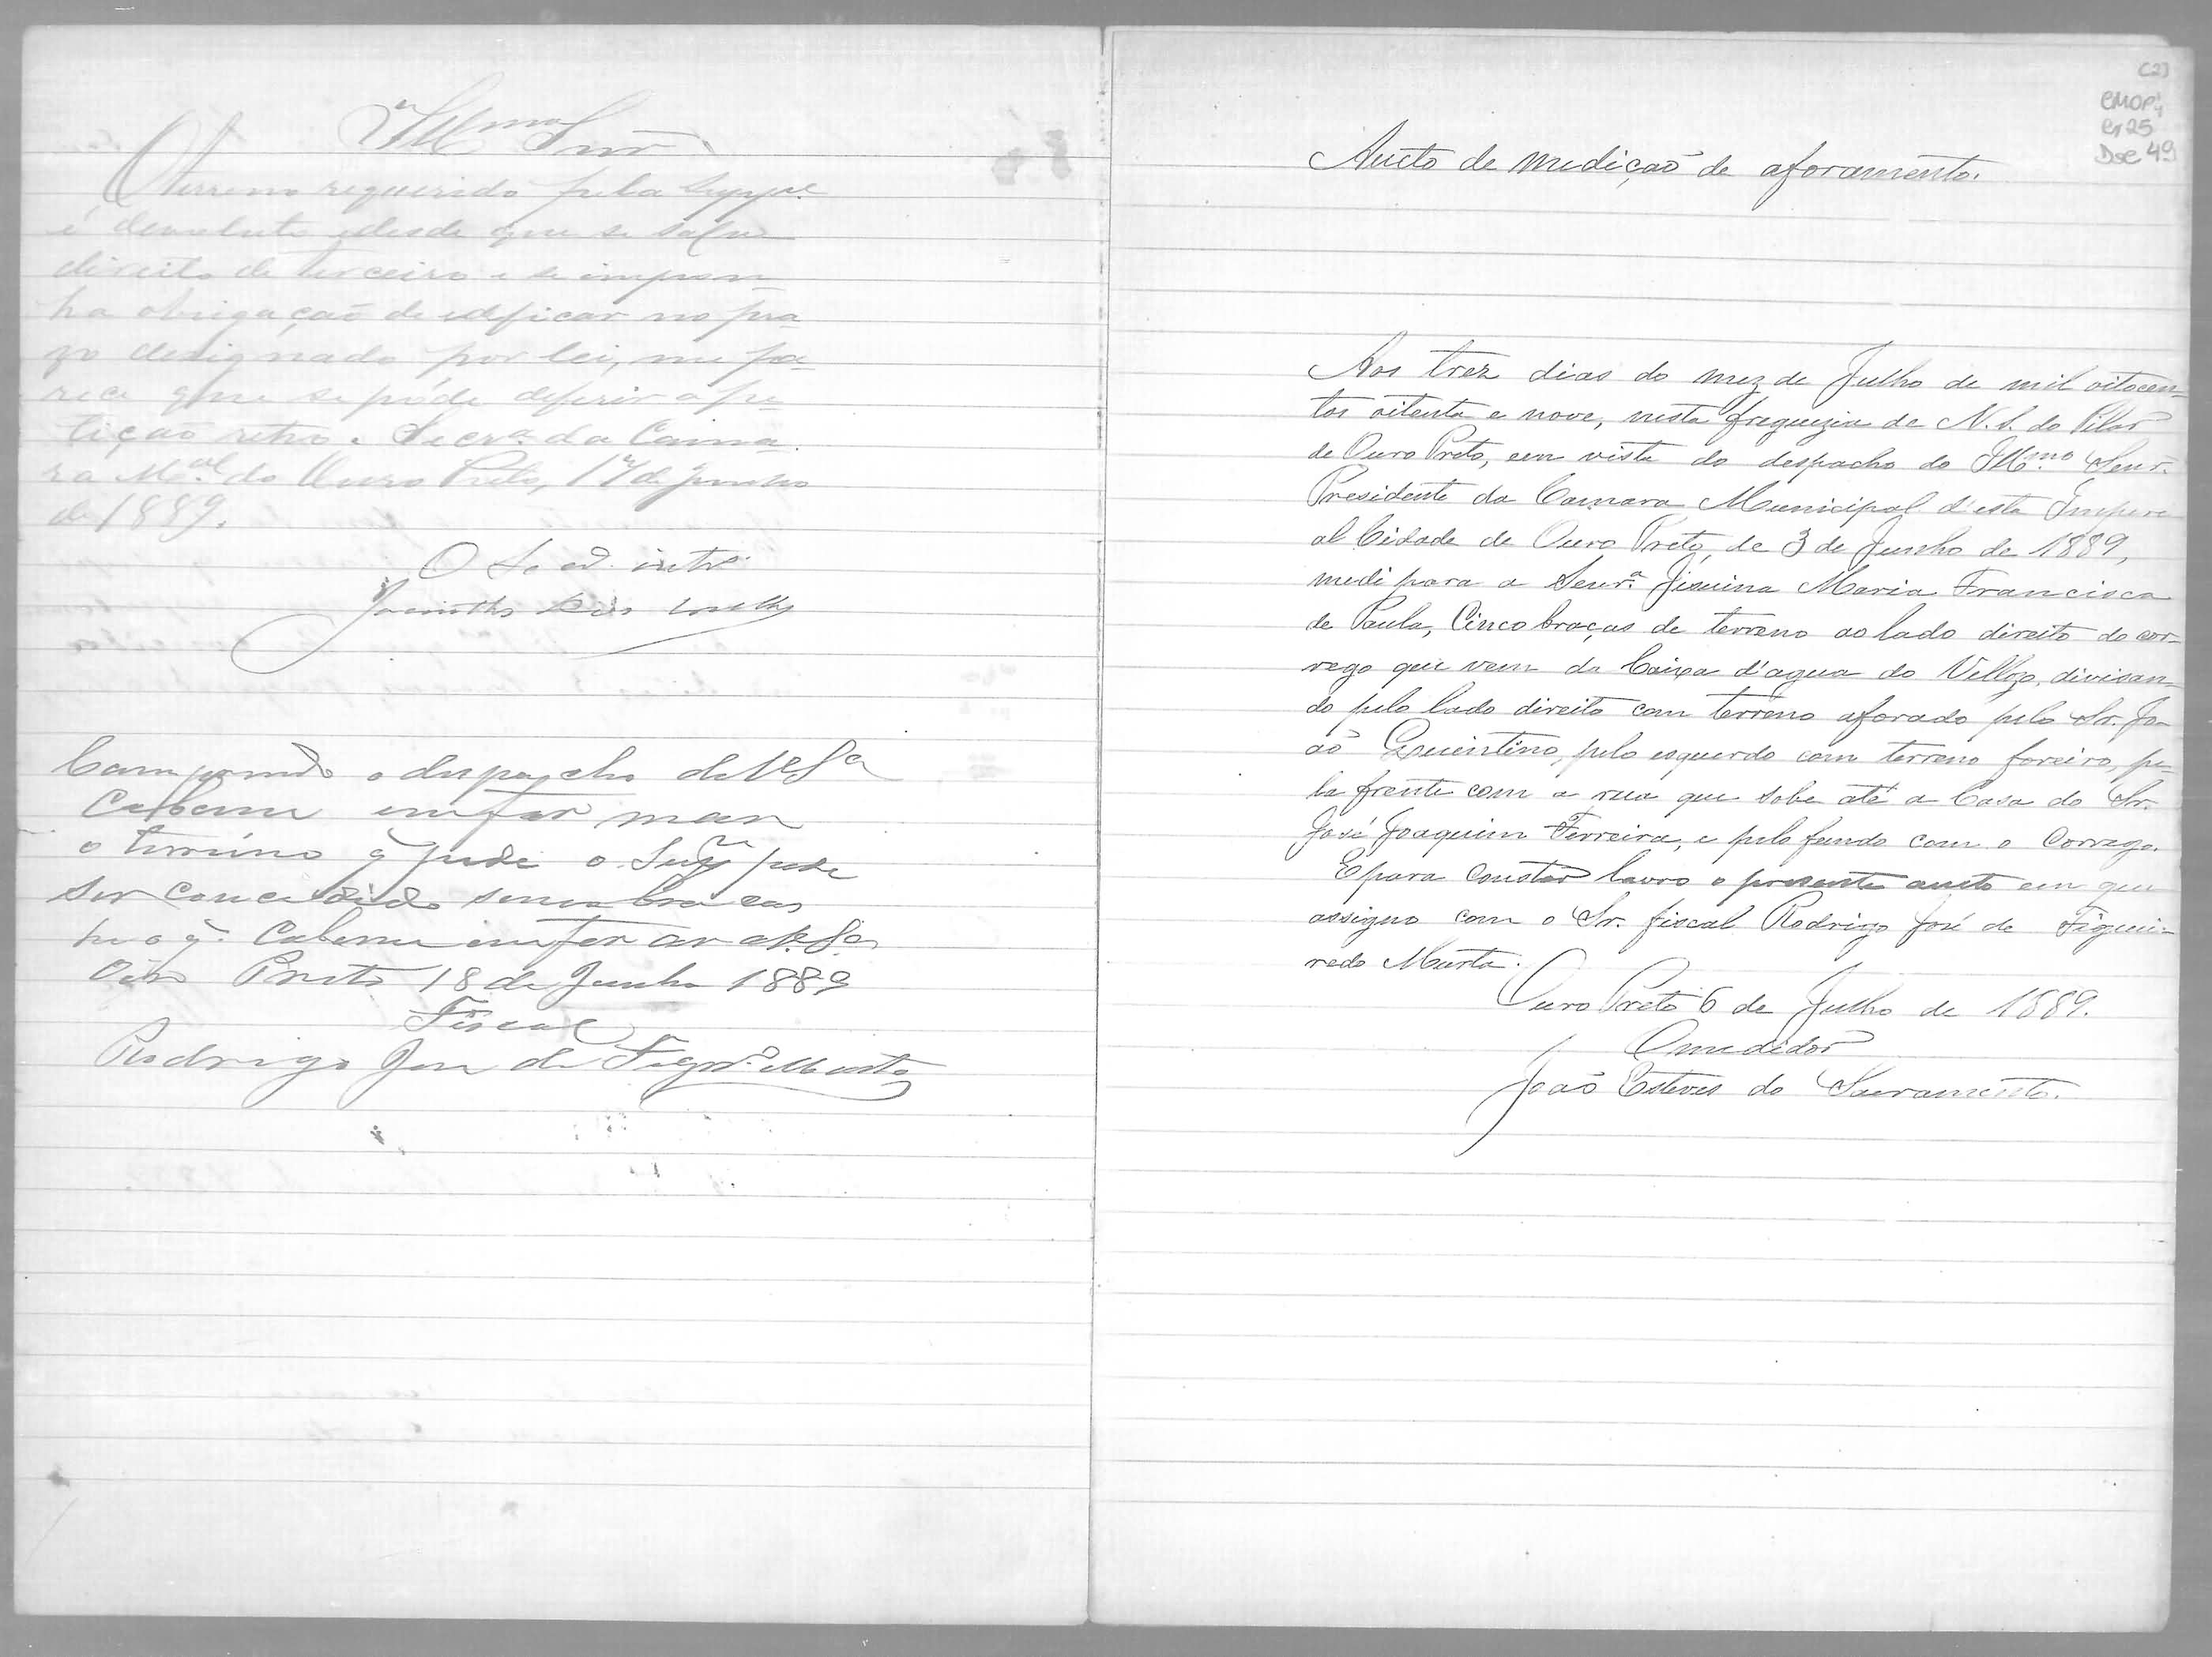 Illmo Snr
O terreno requerido pela suppe.
é devoluto e desde que se salve
direito de terceiro e se impon-
ha obrigação de edeficar no pra-
zo designado por lei, me pa-
rece que se póde deferir a pe-
tição retro. Secra. da Cama-
ra Mal. do Ouro Preto, 17 de Junho
de 1889.
O Secro. intro.
Jacintho Dias
Comprindo o despacho de VSa
Cabeme enformar
o terreno q̃ pede o Supe pode
ser concedido sem
he o q̃. Cabeme enformar a V.Sa
Oiro Preto 18 de Junho 1889
Fiscal
Rodrigo Jose de Figrdo. Murta
(2)
CMOP
Cx 25
Doc 49
Aucto de medição de aforamento.
Aos trez dias do mez de Julho de mil oitocen-
tos oitenta e nove, nesta freguezia de N. S. do Pilar
de Ouro Preto, em vista do despacho do Illmo. Senr.
Presidente da Camara Municipal d'esta Imperi
al Cidade de Ouro Preto, de 3 de Junho de 1889,
medi para a Senra. Jisuina Maria Francisca
de Paula, Cinco braças de terreno ao lado direito do cor-
rego que vem da Caixa d'agua do Vellozo, divisan-
do pelo lado direito com terreno aforado pelo Sr. Jo-
ão Quintino, pelo esquerdo com terreno foreiro, pe-
la frente com a rua que sobe até a Casa do Sr.
José Joaquim Ferreira, e pelo fundo com o Corrego.
E para constar lavro o presente aucto em que
assigno com o Sr. fiscal Rodrigo José de Figuei-
redo Murta.
Ouro Preto 6 de Julho de 1889.
O medidor
João Esteves do Sacramento.